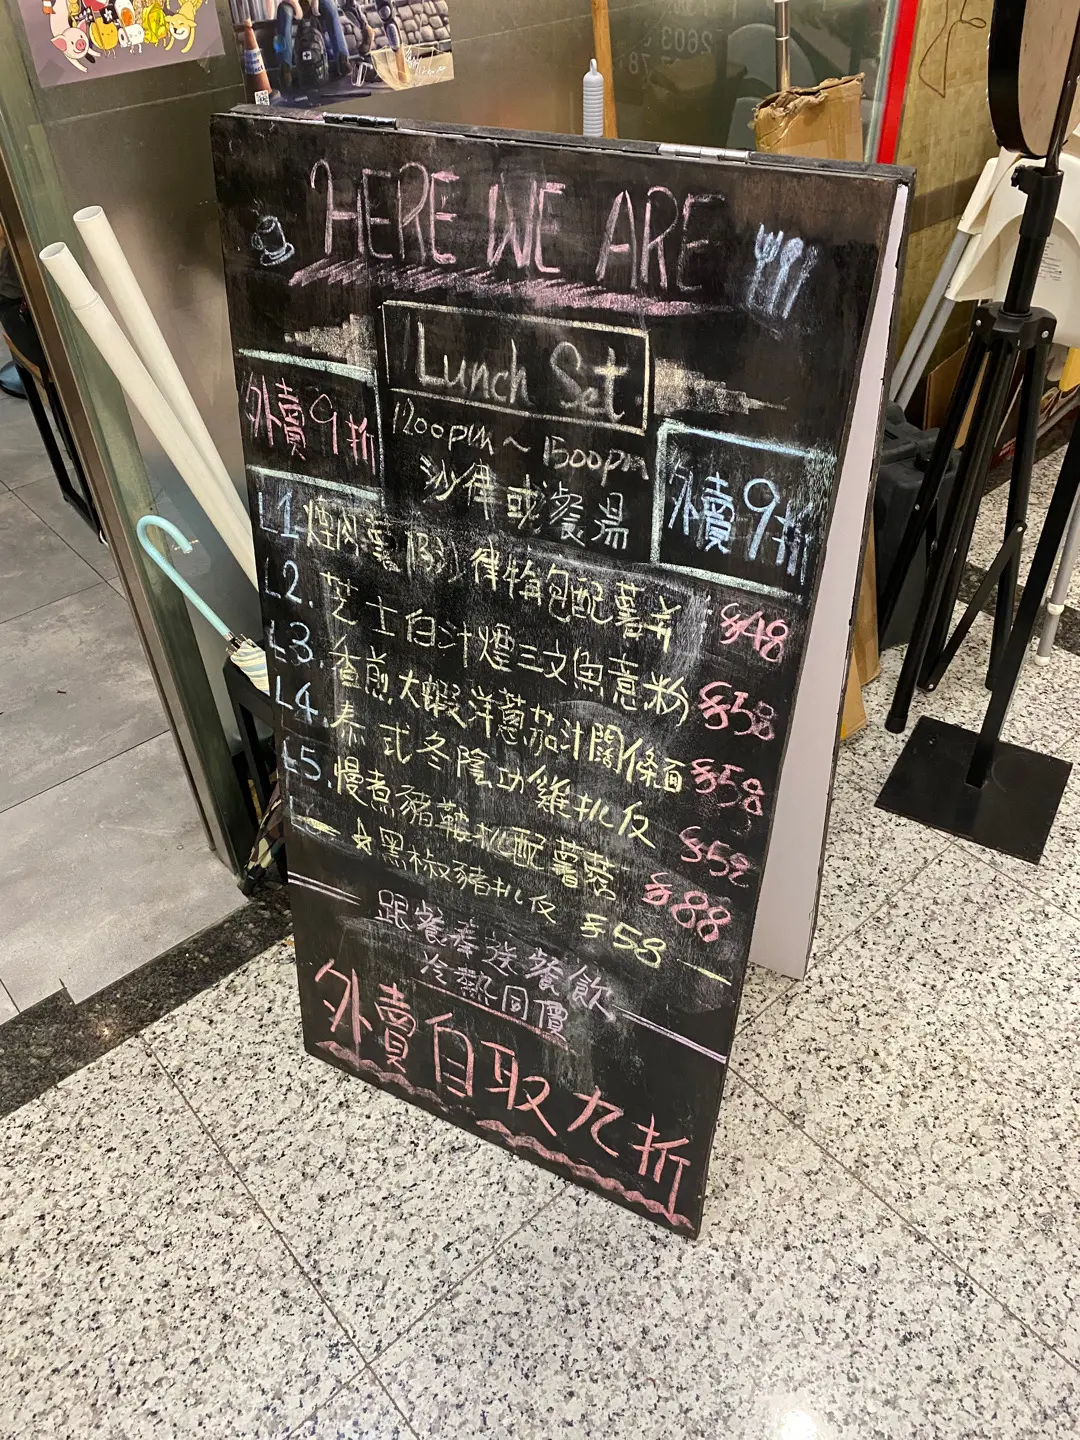 HERE WE ARE
Lunch Set
1200pm ~ 1500pm
外賣9折
沙律或餐湯
外賣9折
L1 煙肉薯仔沙律牛角包配薯片 $48
L2. 芝士白汁煙三文魚意粉 $58
L3. 香煎大蝦洋蔥茄汁闊條麵 $58
L4. 泰式冬陰功雞扒飯 $52
L5. 慢煮豬鞍扒配薯蓉 $88
L6 ☆黑椒豬扒飯 $58
跟餐奉送餐飲
冷熱同價
外賣自取九折